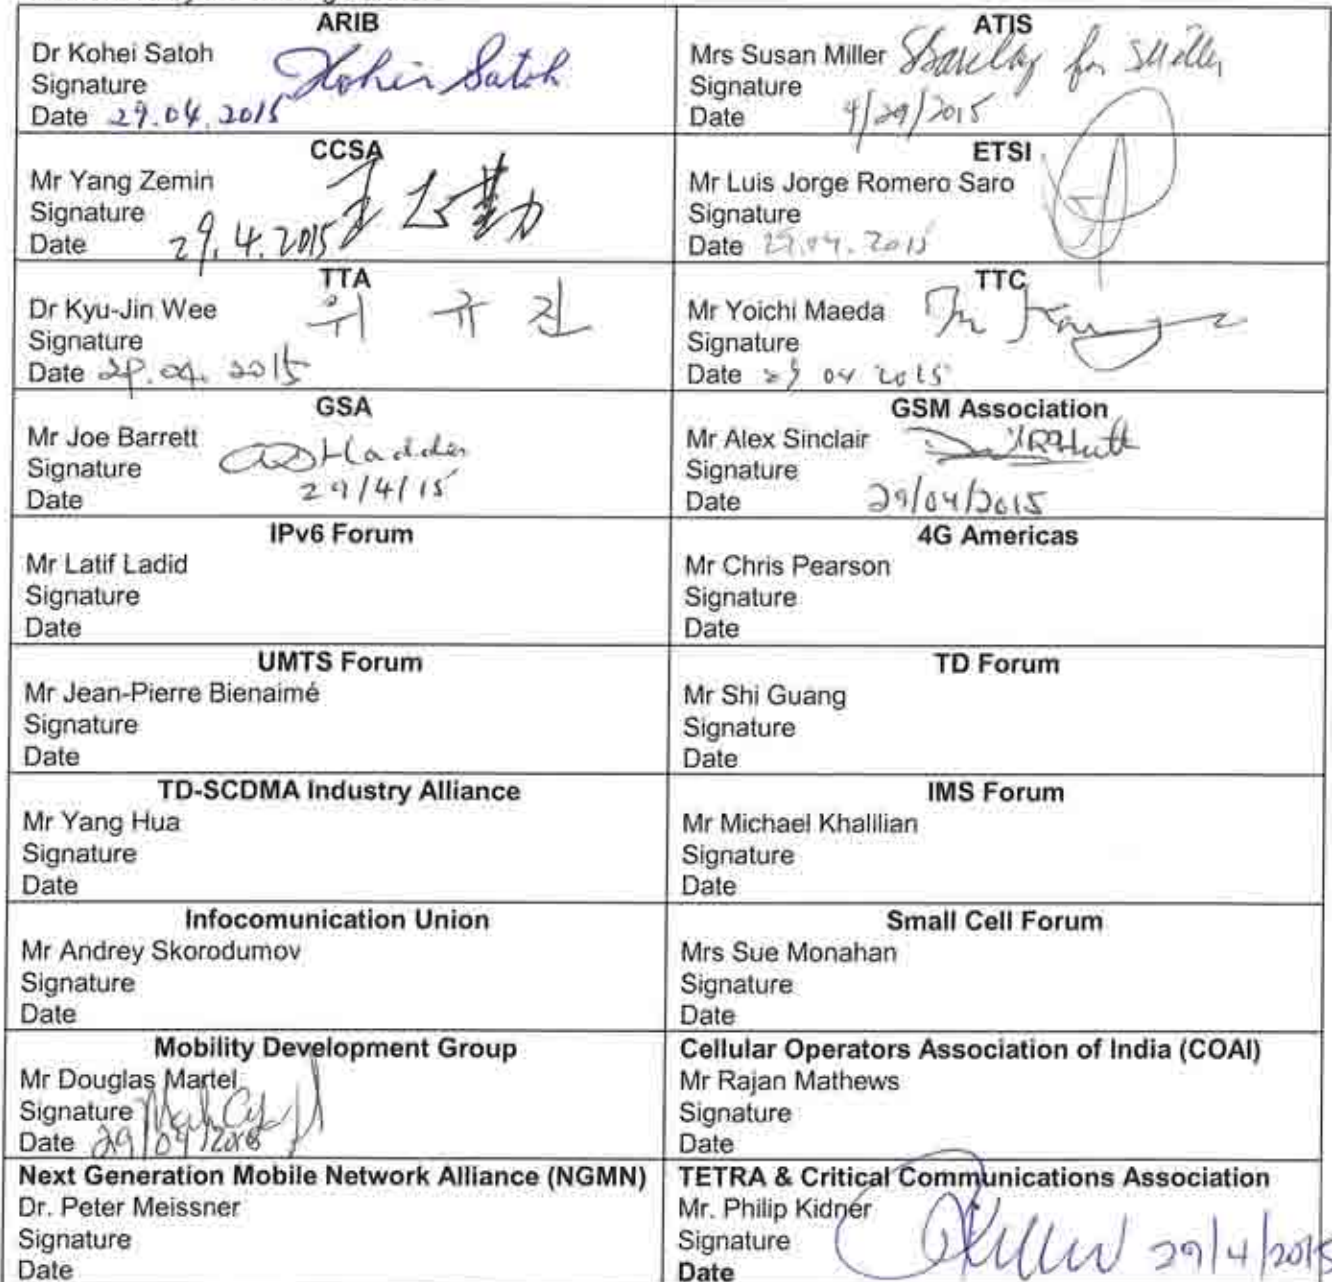 ARIB
Dr Kohei Satoh
Signature Kohei Satoh
Date 29.04.2015
ATIS
Mrs Susan Miller SBarclay for SMiller
Signature
Date 4/29/2015
CCSA
Mr Yang Zemin
Signature
Date 29.4.2015
ETSI
Mr Luis Jorge Romero Saro
Signature
Date 29.04.2015
TTA
Dr Kyu-Jin Wee 위 규 진
Signature
Date 29.04.2015
TTC
Mr Yoichi Maeda
Signature
Date 29 04 2015
GSA
Mr Joe Barrett
Signature
Date 29/4/15
GSM Association
Mr Alex Sinclair
Signature
Date 29/04/2015
IPv6 Forum
Mr Latif Ladid
Signature
Date
4G Americas
Mr Chris Pearson
Signature
Date
UMTS Forum
Mr Jean-Pierre Bienaimé
Signature
Date
TD Forum
Mr Shi Guang
Signature
Date
TD-SCDMA Industry Alliance
Mr Yang Hua
Signature
Date
IMS Forum
Mr Michael Khalilian
Signature
Date
Infocomunication Union
Mr Andrey Skorodumov
Signature
Date
Small Cell Forum
Mrs Sue Monahan
Signature
Date
Mobility Development Group
Mr Douglas Martel
Signature
Date 29/04/2015
Cellular Operators Association of India (COAI)
Mr Rajan Mathews
Signature
Date
Next Generation Mobile Network Alliance (NGMN)
Dr. Peter Meissner
Signature
Date
TETRA & Critical Communications Association
Mr. Philip Kidner
Signature 29/4/2015
Date